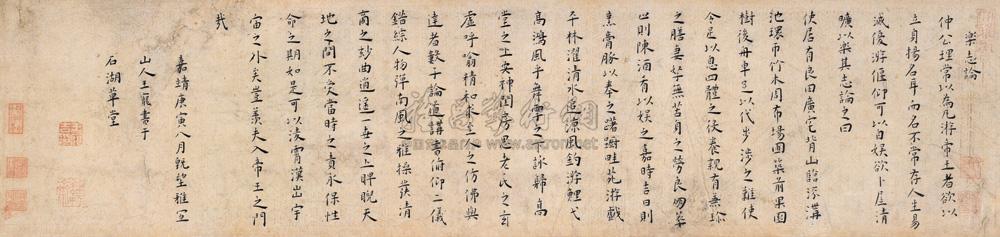 樂志論
仲公理常以為凡游帝王者欲以
立身揚名耳而名不常存人生易
滅優游偃仰可以自娛欲卜居清
曠以樂其志論之曰
使居有良田廣宅背山臨流溝
池環帀竹木周布場圃築前果園
樹後舟車足以代步涉之難使
令足以息四體之役養親有兼珍
之膳妻孥無苦身之勞良朋萃
止則陳酒肴以娛之嘉時吉日則
烹羔豚以奉之躊躇畦苑游戲
平林濯清水追涼風釣游鯉弋
高鴻風乎舞雩之下詠歸高
堂之上安神閨房思老氏之玄
虛呼噏精和求至人之仿佛與
達者數子論道講書俯仰二儀
錯綜人物彈南風之雅操發清
商之妙曲逍遙一世之上睥睨天
地之間不受當時之責永保性
命之期如是可以凌霄漢出宇
宙之外矣豈羨夫入帝王之門
哉
嘉靖庚寅八月旣望雅宜
山人王寵書于
石湖草堂